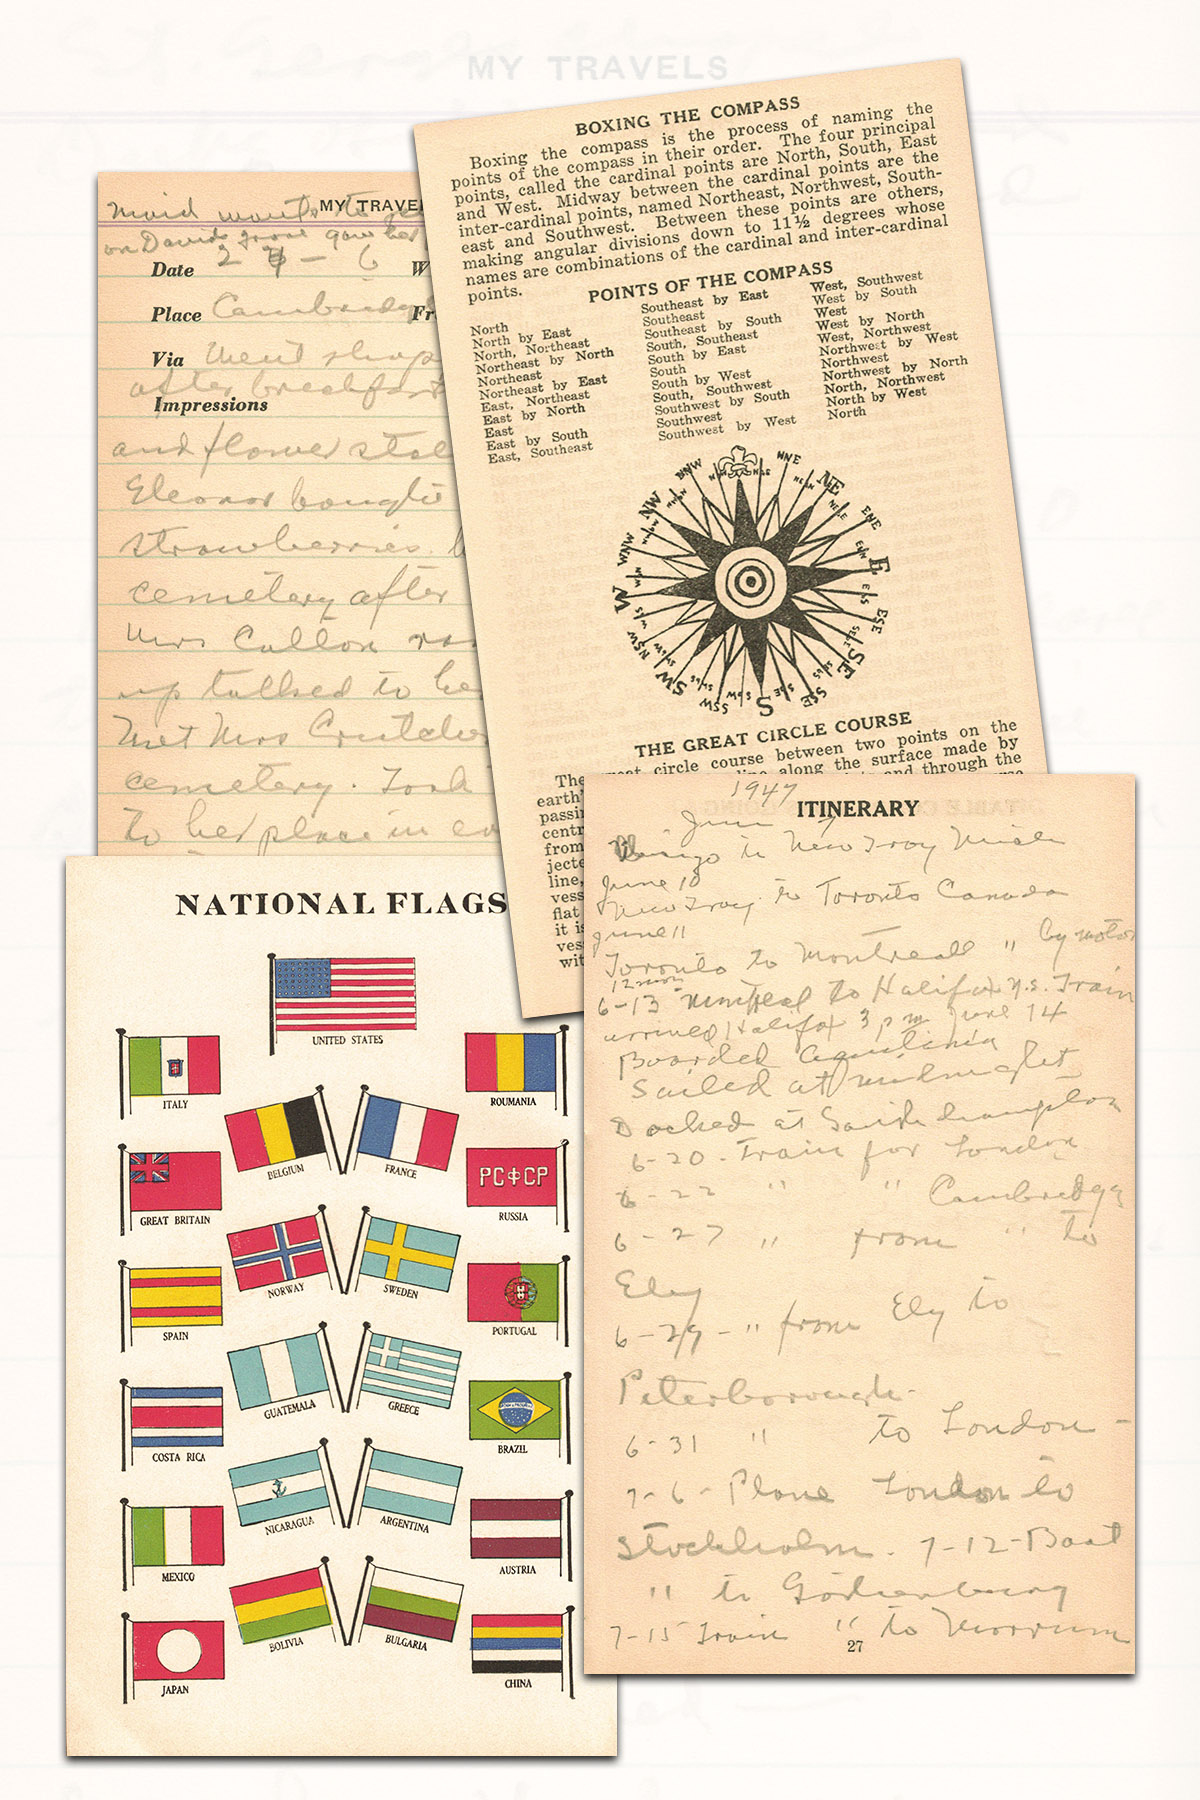 MY TRAVELS
BOXING THE COMPASS
Boxing the compass is the process of naming the
points of the compass in their order. The four principal
points, called the cardinal points are North, South, East
and West. Midway between the cardinal points are the
inter-cardinal points, named Northeast, Northwest, South-
east and Southwest. Between these points are others,
making angular divisions down to 11½ degrees whose
names are combinations of the cardinal and inter-cardinal
points.
POINTS OF THE COMPASS
North
North by East
North, Northeast
Northeast by North
Northeast
Northeast by East
East, Northeast
East by North
East
East by South
East, Southeast
Southeast by East
Southeast
Southeast by South
South, Southeast
South by East
South
South by West
South, Southwest
Southwest by South
Southwest
Southwest by West
West, Southwest
West by South
West
West by North
West, Northwest
Northwest by West
Northwest
Northwest by North
North, Northwest
North by West
North
NNW
NNE
NW
NE
WNW
ENE
W
E
ESE
SW
SE
SSW
S
SSE
THE GREAT CIRCLE COURSE
The great circle course between two points on the
line along the surface made by
and through the
earth'
passi
centr
from
jecte
line,
vess
flat
it is
ves
wit
MY TRAVE
Maid wants to
on Davids gave her
Date 2 7 - 6 W
Place Cambridge Fr
Via Went shop
after breakfast
Impressions
and flower stal
Eleanor bought
strawberries.
cemetery after
Mrs Cullon ran
up talked to he
Met Mrs Crutcher
cemetery. Took
to her place in ev
NATIONAL FLAGS
UNITED STATES
ITALY
ROUMANIA
BELGIUM
FRANCE
GREAT BRITAIN
РСФСР
RUSSIA
NORWAY
SWEDEN
SPAIN
PORTUGAL
GUATEMALA
GREECE
COSTA RICA
BRAZIL
NICARAGUA
ARGENTINA
MEXICO
AUSTRIA
BOLIVIA
BULGARIA
JAPAN
CHINA
1947
ITINERARY
June 7
to New Troy Mich
June 10
New Troy to Toronto Canada
June 11
Toronto to Montreall " by motor
12 noon
6-13 Montreal to Halifax N.S. Train
arrived Halifax 3 pm June 14
Boarded Aquitinia
Sailed at midnight
Docked at Southhampton
6-20- Train for London
6-22 " " Cambridge
6-27 " from " to
Ely
6-29-" from Ely to
Peterborough-
6-31 " to London-
7-6- Plane London to
Stockholm. 7-12-Boat
" to Gothenburg
7-15 Train " to Morrum
27